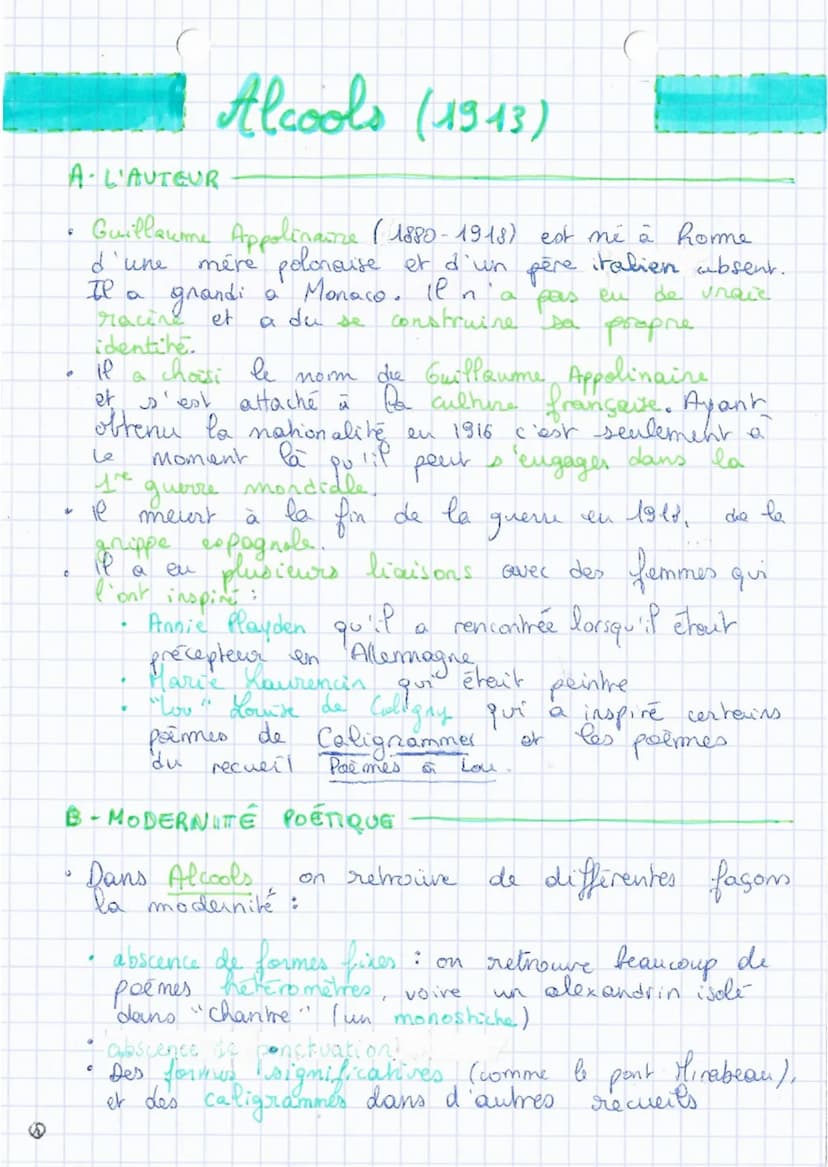 Alcools (1913)
A - L'AUTEUR
• Guillaume Appolinaire (1880-1918) est né à Rome
d'une mère polonaise et d'un père italien absent.
Il a grandi a Monaco. Il n'a pas eu de vraie
racine et a du se construire sa propre
identité.
• Il a choisi le nom de Guillaume Appolinaire
et s'est attaché à la culture française. Ayant
obtenu la nationalité en 1916 c'est seulement à
ce moment là qu'il peut s'engager dans la
1re guerre mondiale.
• Il meurt à la fin de la guerre en 1918, de la
grippe espagnole.
• Il a eu plusieurs liaisons avec des femmes qui
l'ont inspiré :
• Annie Playden qu'il a rencontrée lorsqu'il était
précepteur en Allemagne
• Marie Laurencin qui était peintre
• "Lou" Louise de Coligny qui a inspiré certains
poèmes de Caligrammes et les poèmes
du recueil Poèmes à Lou.
B - MODERNITÉ POÉTIQUE
• Dans Alcools, on retrouve de différentes façons
la modernité :
• abscence de formes fixes : on retrouve beaucoup de
poèmes hétéromètres, voire un alexandrin isolé
dans "Chantre" (un monostiche)
• abscence de ponctuation
• Des formes significatives (comme le pont Mirabeau),
et des caligrammes dans d'autres recueils
①